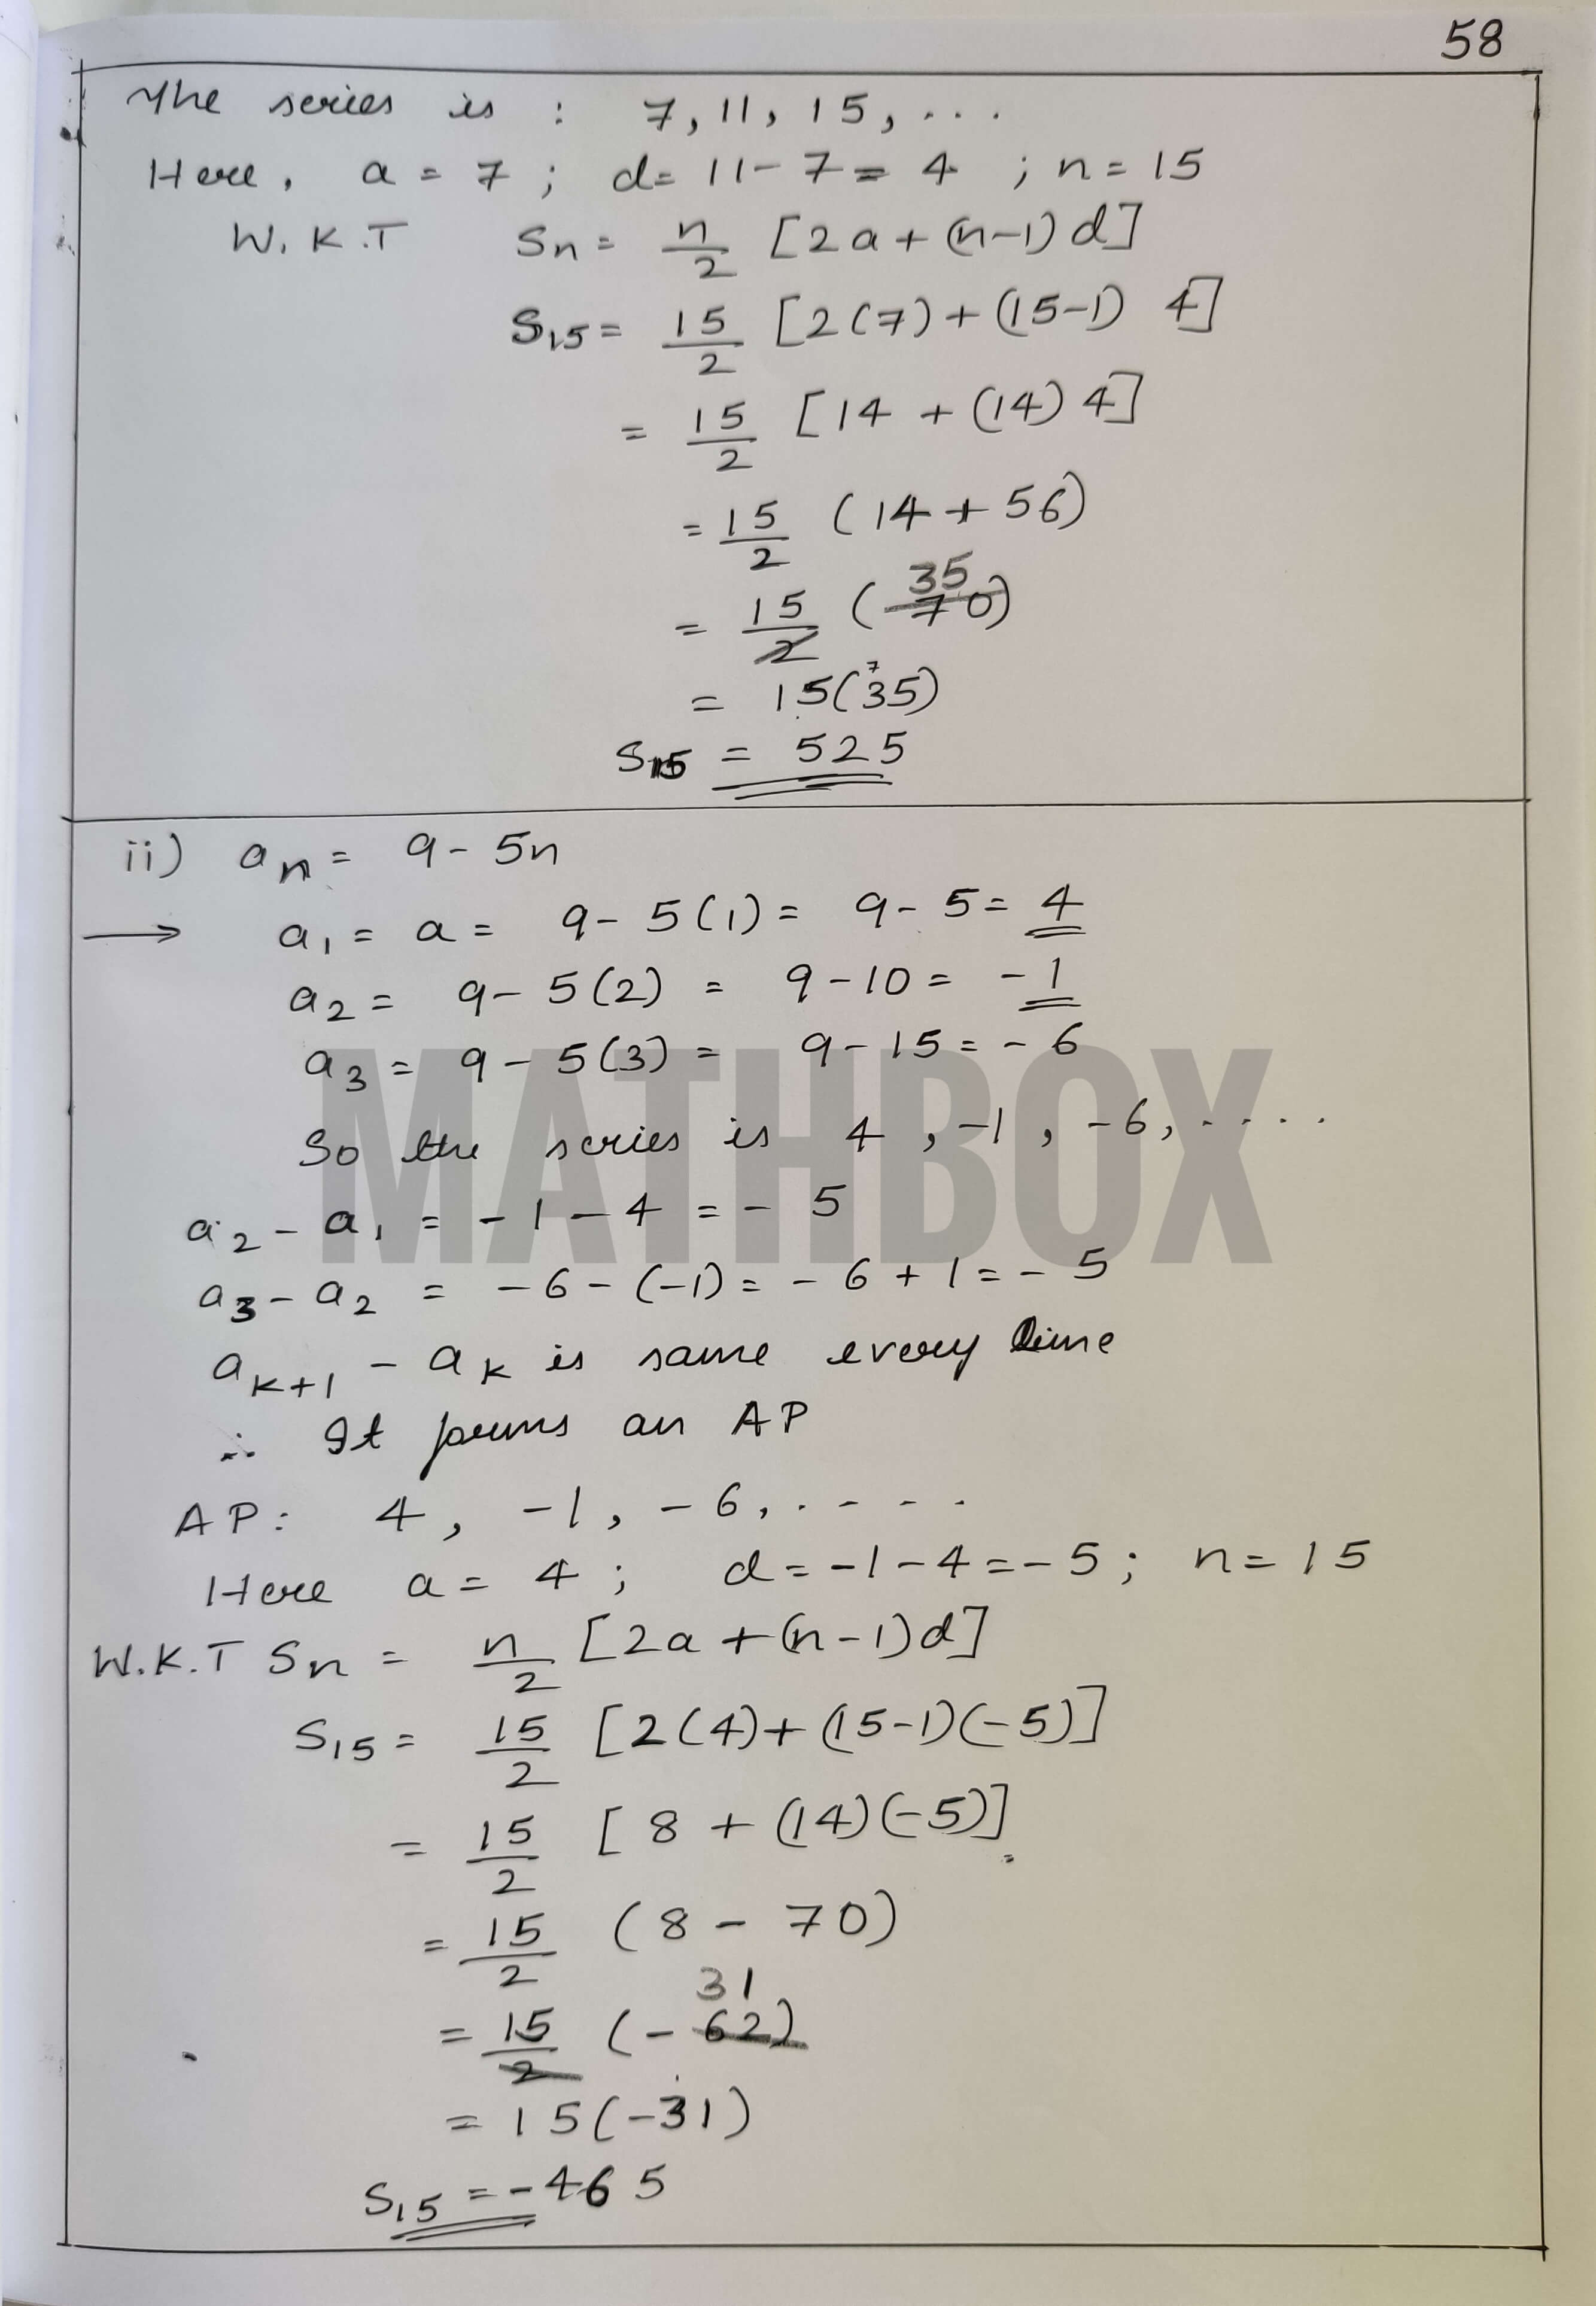 58
The series is : 7, 11, 15, ...
Here, a = 7 ; d = 11 - 7 = 4 ; n = 15
W.K.T Sn = n/2 [2a + (n-1) d]
S15 = 15/2 [2(7) + (15-1) 4]
= 15/2 [14 + (14) 4]
= 15/2 (14 + 56)
35
= 15/2 (70)
7
= 15(35)
S15 = 525
ii) an = 9 - 5n
→ a1 = a = 9 - 5(1) = 9 - 5 = 4
a2 = 9 - 5(2) = 9 - 10 = -1
a3 = 9 - 5(3) = 9 - 15 = -6
MATHBOX
So the series is 4, -1, -6, .....
a2 - a1 = -1 - 4 = -5
a3 - a2 = -6 - (-1) = -6 + 1 = -5
ak+1 - ak is same every time
∴ It forms an AP
AP: 4, -1, -6, ....
Here a = 4 ; d = -1 - 4 = -5 ; n = 15
W.K.T Sn = n/2 [2a + (n-1)d]
S15 = 15/2 [2(4) + (15-1)(-5)]
= 15/2 [8 + (14)(-5)]
= 15/2 (8 - 70)
31
= 15/2 (-62)
= 15(-31)
S15 = -465